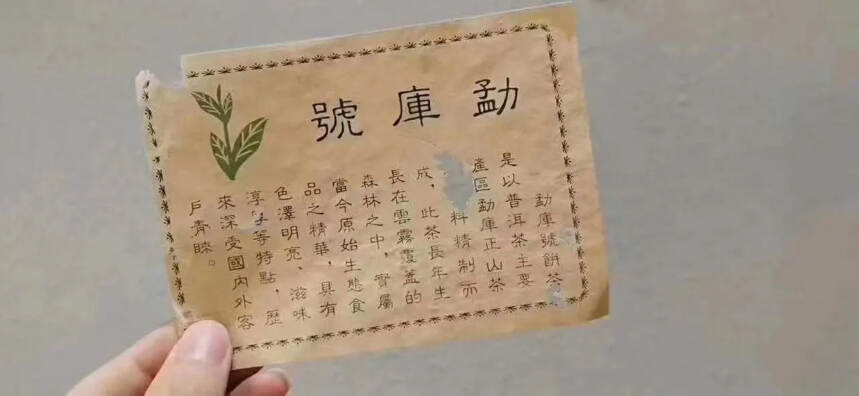 勐庫號
勐庫號餅茶
是以普洱茶主要
產區勐庫正山茶
料精制而
成，此茶長年生
長在雲霧覆蓋的
森林之中，實屬
當今原始生態食
品之精華，具有
色澤明亮、滋味
淳等特點，歷
來深受國內外客
戶青睞。